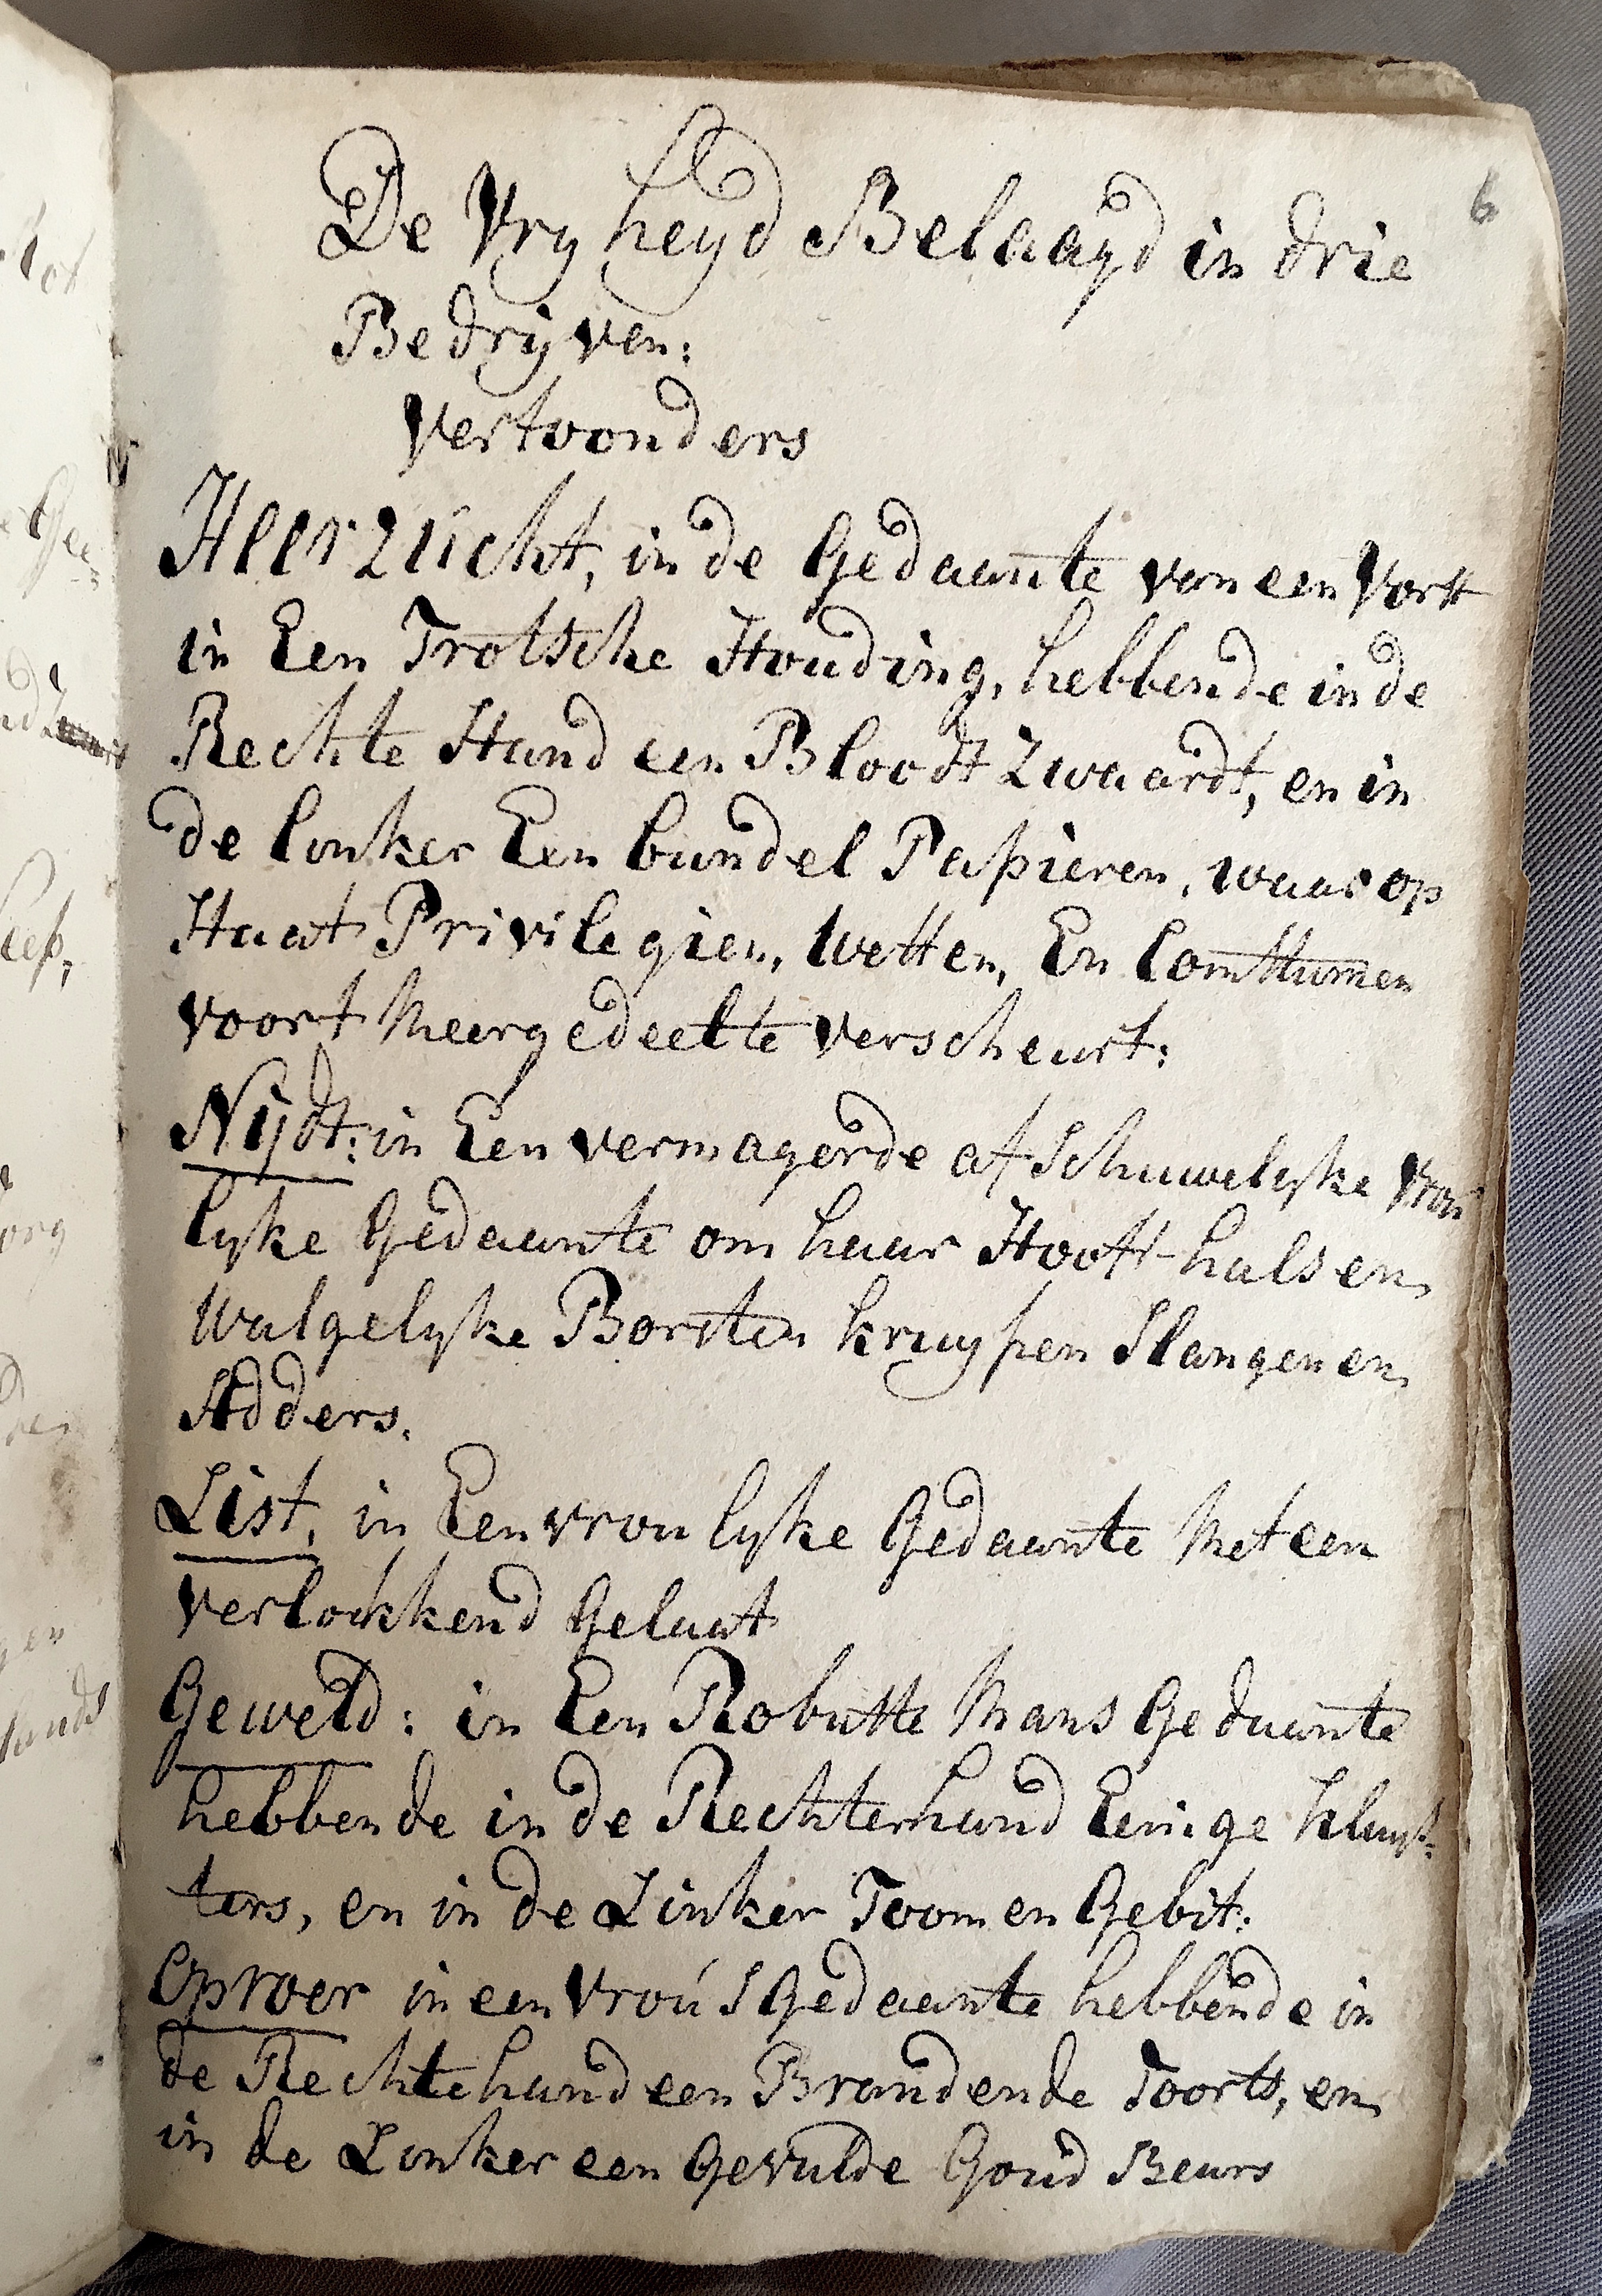 6
De Vryheyd Belaagd in drie
Bedryven:
Vertoonders
Heerzucht, in de Gedaante van een Vorst
in Een Trotsche Houding, hebbende in de
Rechte Hand een Bloodt Zwaardt, en in
de linker Een bundel Papieren, waar op
Staat Privilegien, Wetten, En
voort Meergedeelte verscheurt:
Nijdt: in Een vermagerde afschuwelyke Vrou
lyke Gedaante om haar Hooft hals en
Walgelyke Borsten kruypen Slangen en
Adders.
List, in Een vroulyke Gedaante Met een
verlokkend Gelaat
Geweld: in Een Robuste Mans Gedaante
hebbende in de Rechterhand Eenige kluys-
ters, en in de Linker Toom en Gebit:
Oproer in een Vrou's Gedaante hebbende in
de Rechtehand een Brandende Toorts, en
in de Linker een Gevulde Goud Beurs